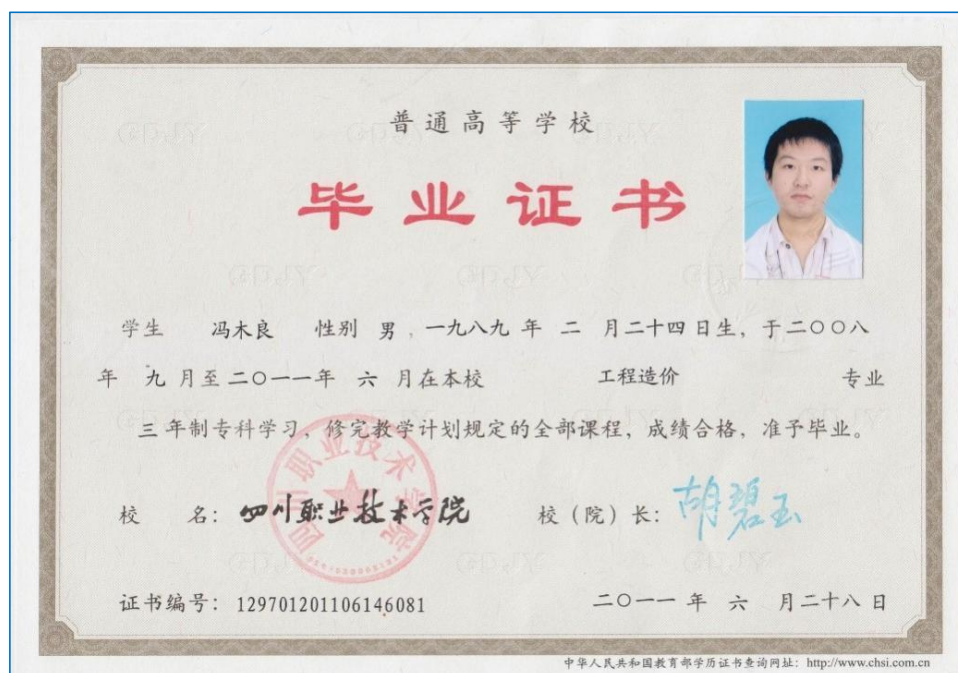 普通高等学校
毕业证书
学生 冯木良 性别 男，一九八九 年 二 月二十四日生，于二〇〇八
年 九 月至二〇一一年 六 月在本校 工程造价 专业
三 年制专科学习，修完教学计划规定的全部课程，成绩合格，准予毕业。
四川职业技术学院
校 名：四川职业技术学院 校（院）长：胡碧玉
证书编号：129701201106146081 二〇一一 年 六 月二十八日
中华人民共和国教育部学历证书查询网址：http://www.chsi.com.cn